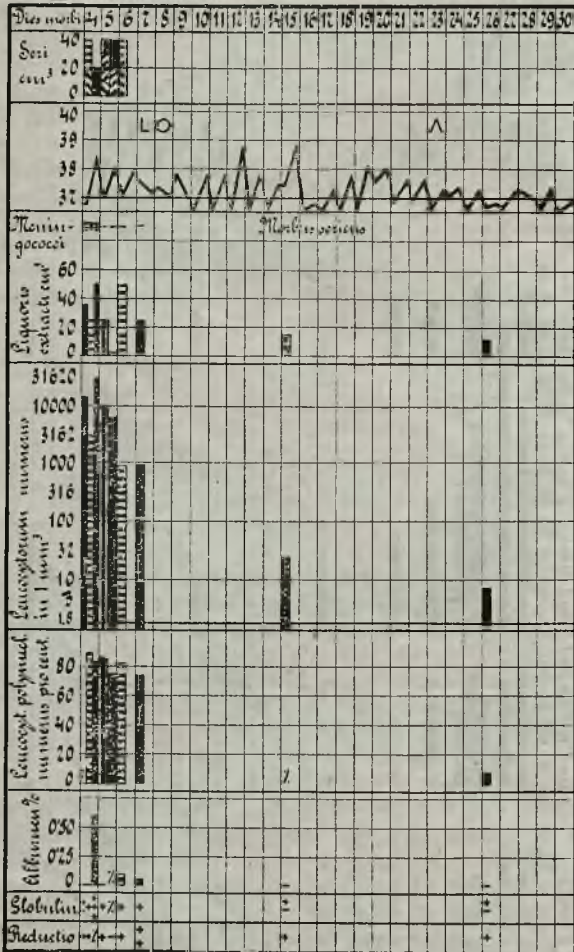 Dies morbi 4 5 6 7 8 9 10 11 12 13 14 15 16 17 18 19 20 21 22 23 24 25 26 27 28 29 30
Seri
cm³
40
20
0
40
39
38
37
L O
Λ
Menin-
gococci
Morbus sericus
Liquoris
extracti cm³
60
40
20
0
Leucocytorum numerus
in 1 mm³
31620
10000
3162
1000
316
100
32
10
Leucocyt. polynucl.
numerus pro cent.
80
60
40
20
0
Albumen %
0'50
0'25
0
Globulin
Reductio